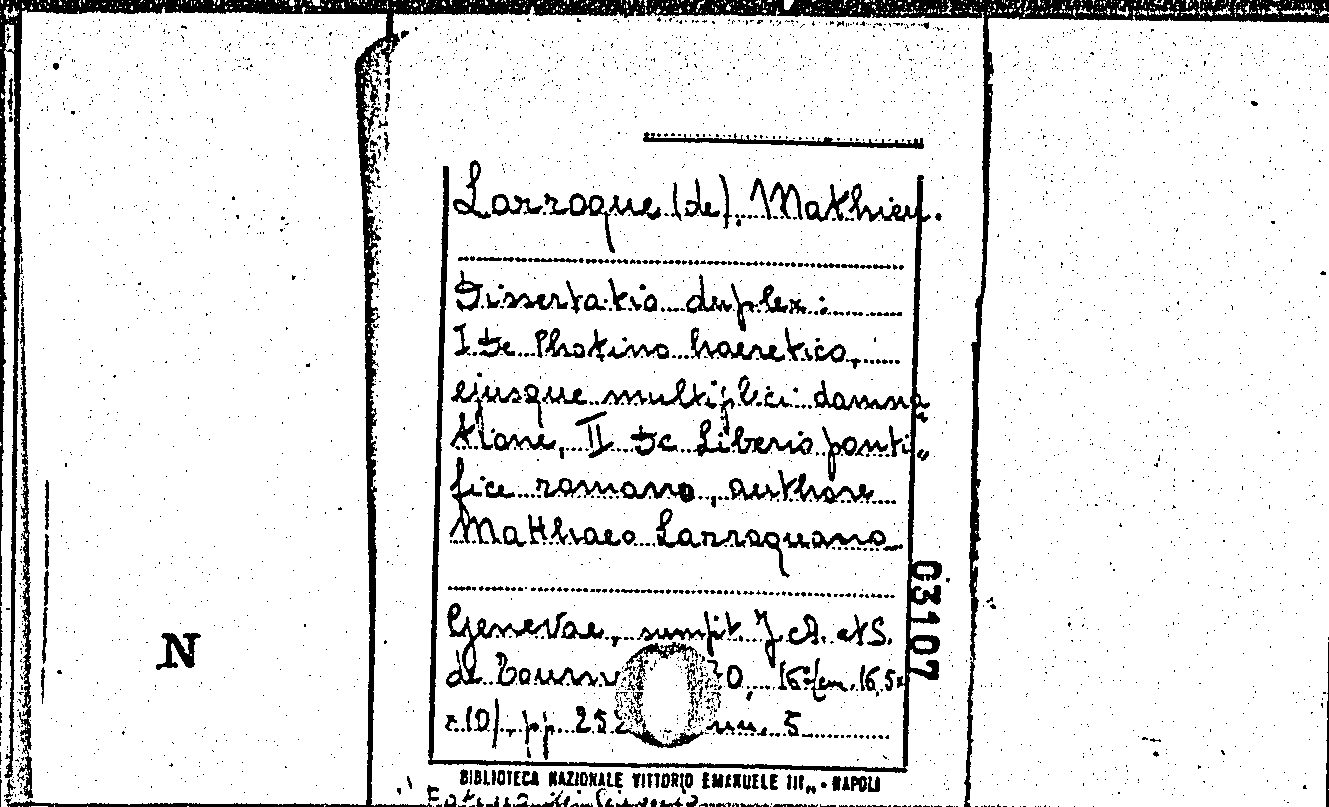 Larroque (de), Mathieu.
Dissertatio duplex:
I De Photino haeretico,
ejusque multiplici damna„
tione, II De Liberio ponti„
fice romano, authore
Matthaeo Larroquano
Genevae, sumpt. J. A. et S.
de Tourn 0, 16º (cm. 16,5x
x10), pp. 252 nn. 5
03107
N
BIBLIOTECA NAZIONALE VITTORIO EMANUELE III„ - NAPOLI